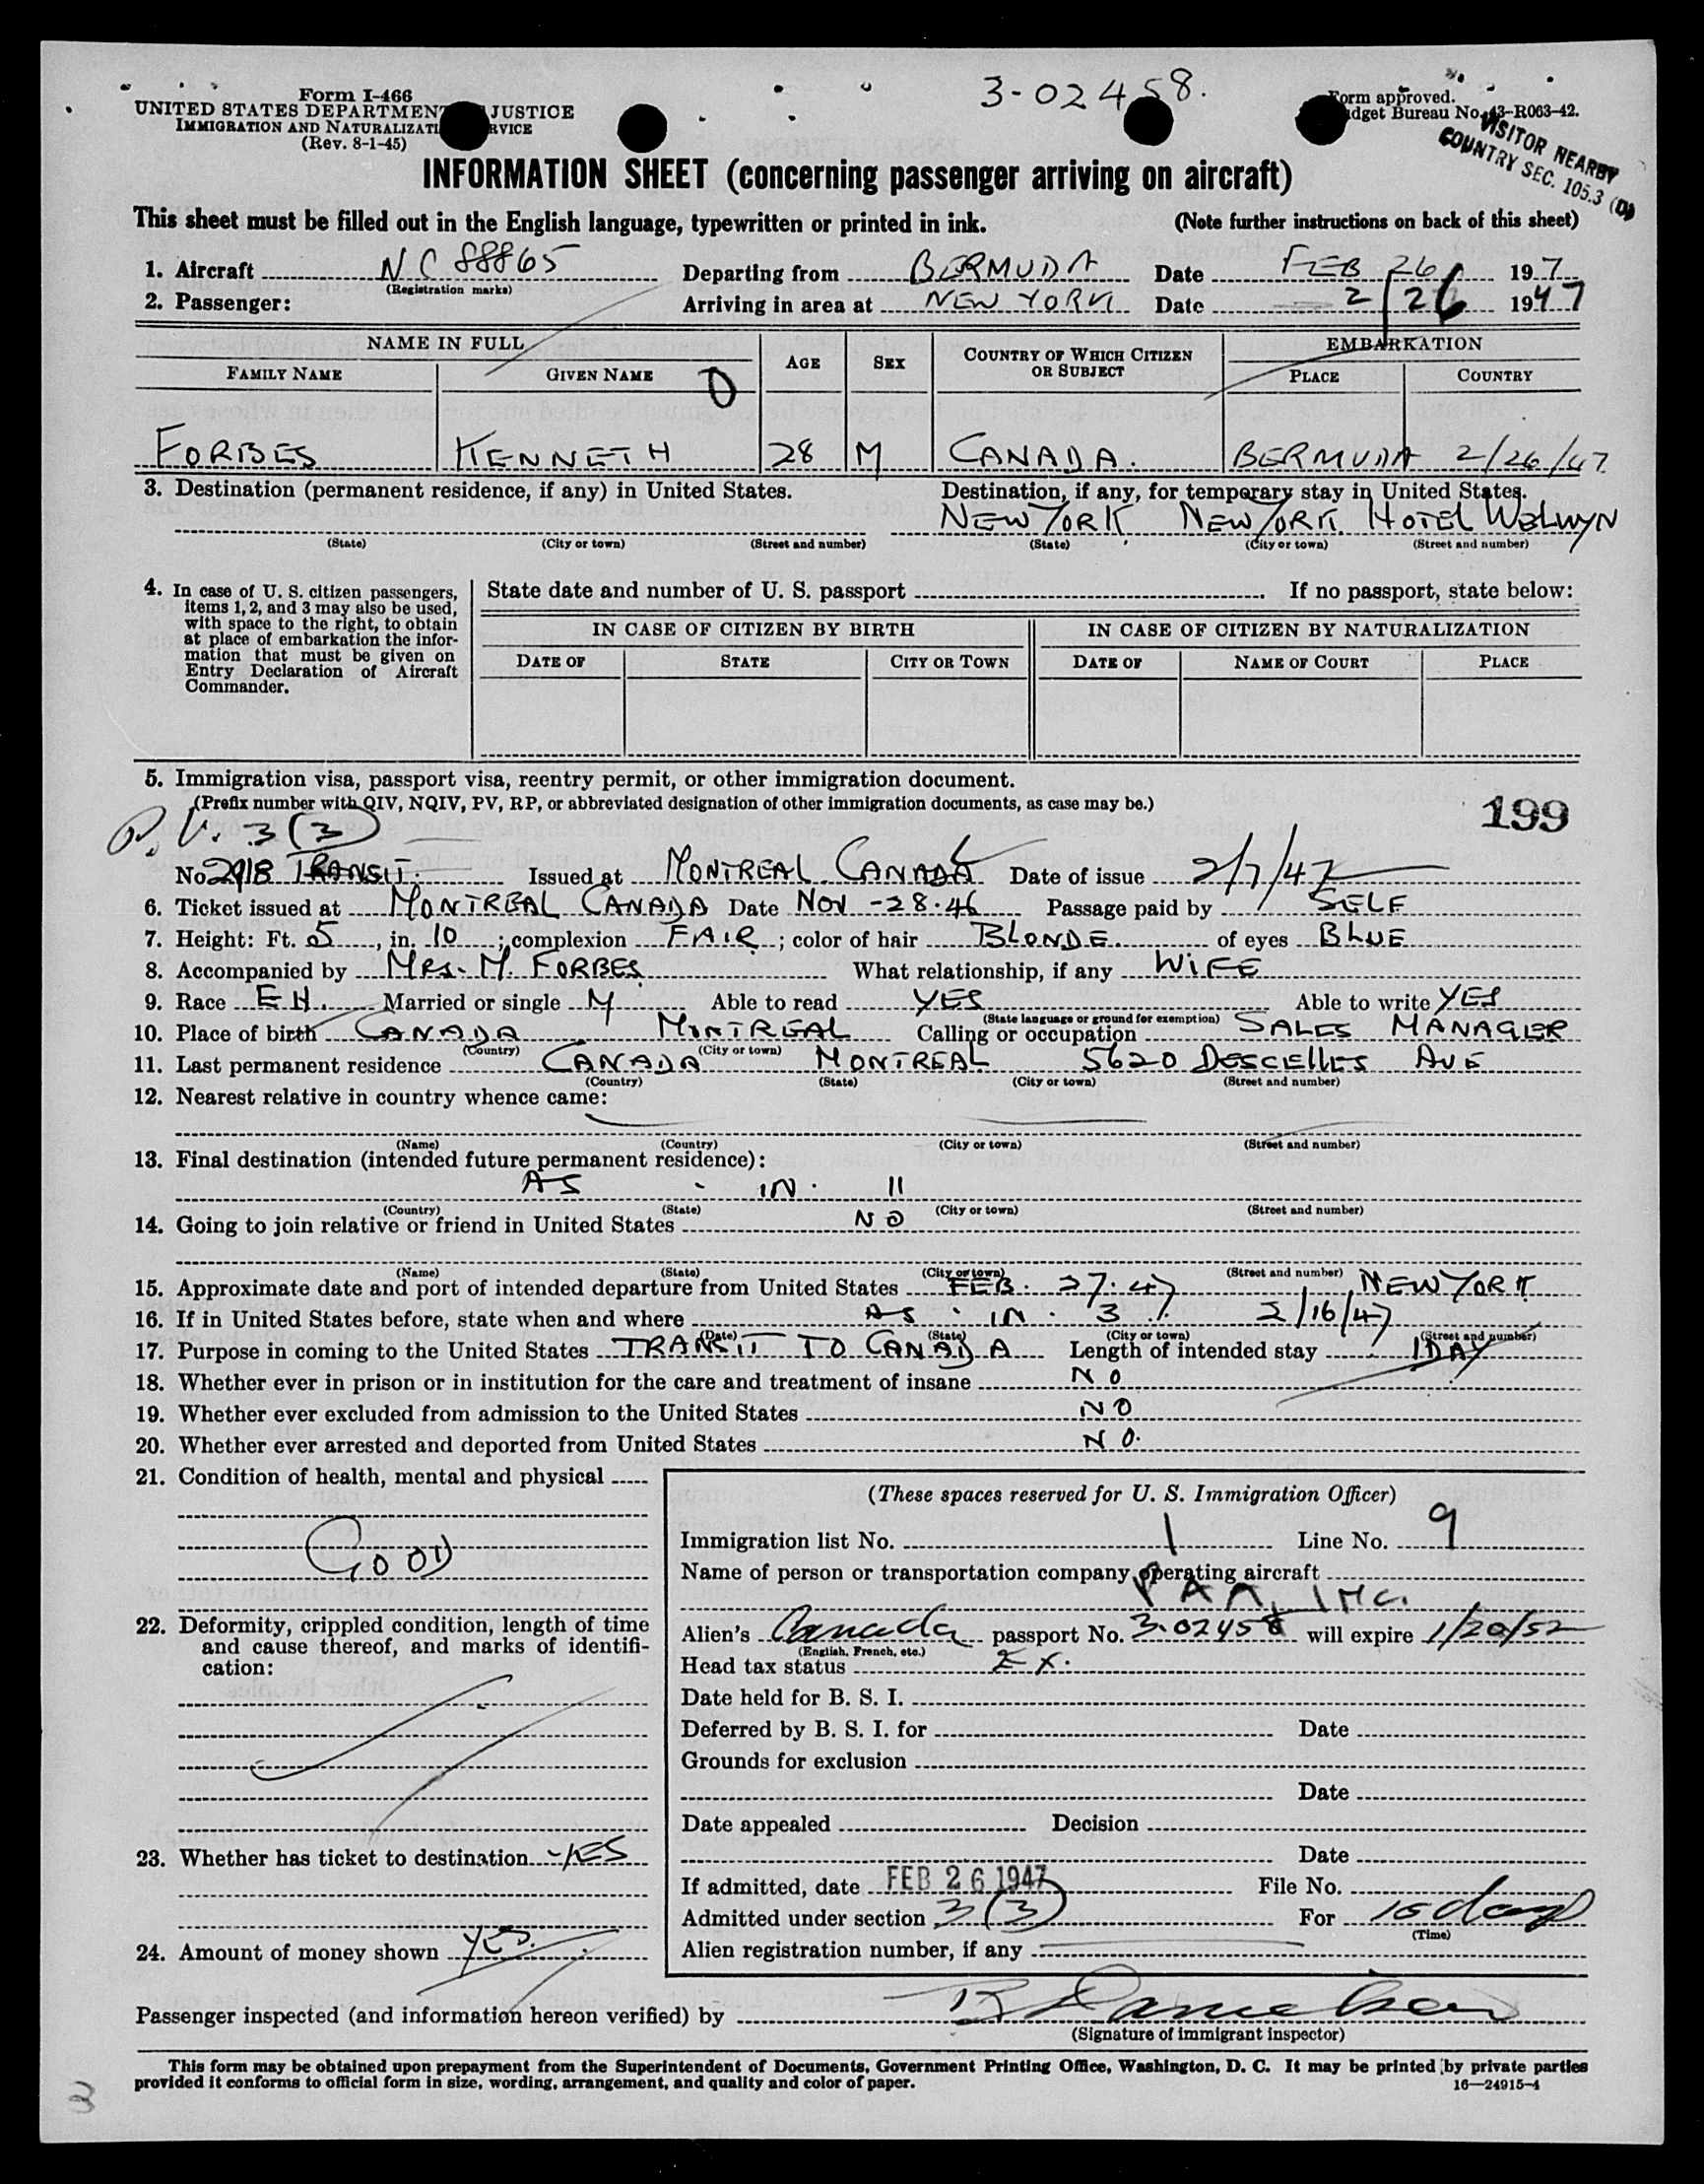 3-02458.
Form I-466
UNITED STATES DEPARTMENT JUSTICE
IMMIGRATION AND NATURALIZATI RVICE
(Rev. 8-1-45)
Form approved.
dget Bureau No. 43-R063-42.
VISITOR NEARBY
COUNTRY SEC. 105.3 (D)
INFORMATION SHEET (concerning passenger arriving on aircraft)
This sheet must be filled out in the English language, typewritten or printed in ink. (Note further instructions on back of this sheet)
1. Aircraft NC 88865 Departing from BERMUDA Date FEB 26 197
(Registration marks)
2. Passenger: Arriving in area at NEW YORK Date 2/26 1947
NAME IN FULL AGE SEX COUNTRY OF WHICH CITIZEN OR SUBJECT EMBARKATION
FAMILY NAME GIVEN NAME PLACE COUNTRY
FORBES KENNETH 28 M CANADA. BERMUDA 2/26/47
3. Destination (permanent residence, if any) in United States. Destination, if any, for temporary stay in United States.
NEW YORK NEW YORK. HOTEL WELWYN
(State) (City or town) (Street and number) (State) (City or town) (Street and number)
4. In case of U. S. citizen passengers, items 1, 2, and 3 may also be used, with space to the right, to obtain at place of embarkation the information that must be given on Entry Declaration of Aircraft Commander.
State date and number of U. S. passport . If no passport, state below:
IN CASE OF CITIZEN BY BIRTH IN CASE OF CITIZEN BY NATURALIZATION
DATE OF STATE CITY OR TOWN DATE OF NAME OF COURT PLACE
5. Immigration visa, passport visa, reentry permit, or other immigration document.
(Prefix number with QIV, NQIV, PV, RP, or abbreviated designation of other immigration documents, as case may be.)
199
P.V. 3(3)
No 2918 TRANSIT. Issued at MONTREAL CANADA Date of issue 2/7/47
6. Ticket issued at MONTREAL CANADA Date NOV -28.46 Passage paid by SELF
7. Height: Ft. 5, in. 10; complexion FAIR; color of hair BLONDE. of eyes BLUE
8. Accompanied by MRS. M. FORBES What relationship, if any WIFE
9. Race EH. Married or single M Able to read YES Able to write YES
(State language or ground for exemption)
10. Place of birth CANADA MONTREAL Calling or occupation SALES MANAGER
(Country) (City or town)
11. Last permanent residence CANADA MONTREAL 5620 DESCELLES AVE
(Country) (State) (City or town) (Street and number)
12. Nearest relative in country whence came:
(Name) (Country) (City or town) (Street and number)
13. Final destination (intended future permanent residence):
AS - IN. 11
(Country) (State) (City or town) (Street and number)
14. Going to join relative or friend in United States NO
(Name) (State) (City or town) (Street and number)
15. Approximate date and port of intended departure from United States FEB. 27.47 NEW YORK
16. If in United States before, state when and where AS. IN. 3 2/16/47
(Date) (State) (City or town) (Street and number)
17. Purpose in coming to the United States TRANSIT TO CANADA Length of intended stay 1 DAY
18. Whether ever in prison or in institution for the care and treatment of insane NO
19. Whether ever excluded from admission to the United States NO
20. Whether ever arrested and deported from United States NO.
21. Condition of health, mental and physical
GOOD
22. Deformity, crippled condition, length of time and cause thereof, and marks of identification:
23. Whether has ticket to destination YES
24. Amount of money shown YES.
(These spaces reserved for U. S. Immigration Officer)
Immigration list No. 1 Line No. 9
Name of person or transportation company operating aircraft
PAA, INC.
Alien's Canada passport No. 3.02458 will expire 1/20/52
(English, French, etc.)
Head tax status EX.
Date held for B. S. I.
Deferred by B. S. I. for Date
Grounds for exclusion
Date
Date appealed Decision
Date
If admitted, date FEB 26 1947 File No.
Admitted under section 3(3) For 10 days
(Time)
Alien registration number, if any
Passenger inspected (and information hereon verified) by
(Signature of immigrant inspector)
This form may be obtained upon prepayment from the Superintendent of Documents, Government Printing Office, Washington, D. C. It may be printed by private parties
provided it conforms to official form in size, wording, arrangement, and quality and color of paper. 16—24915-4
3